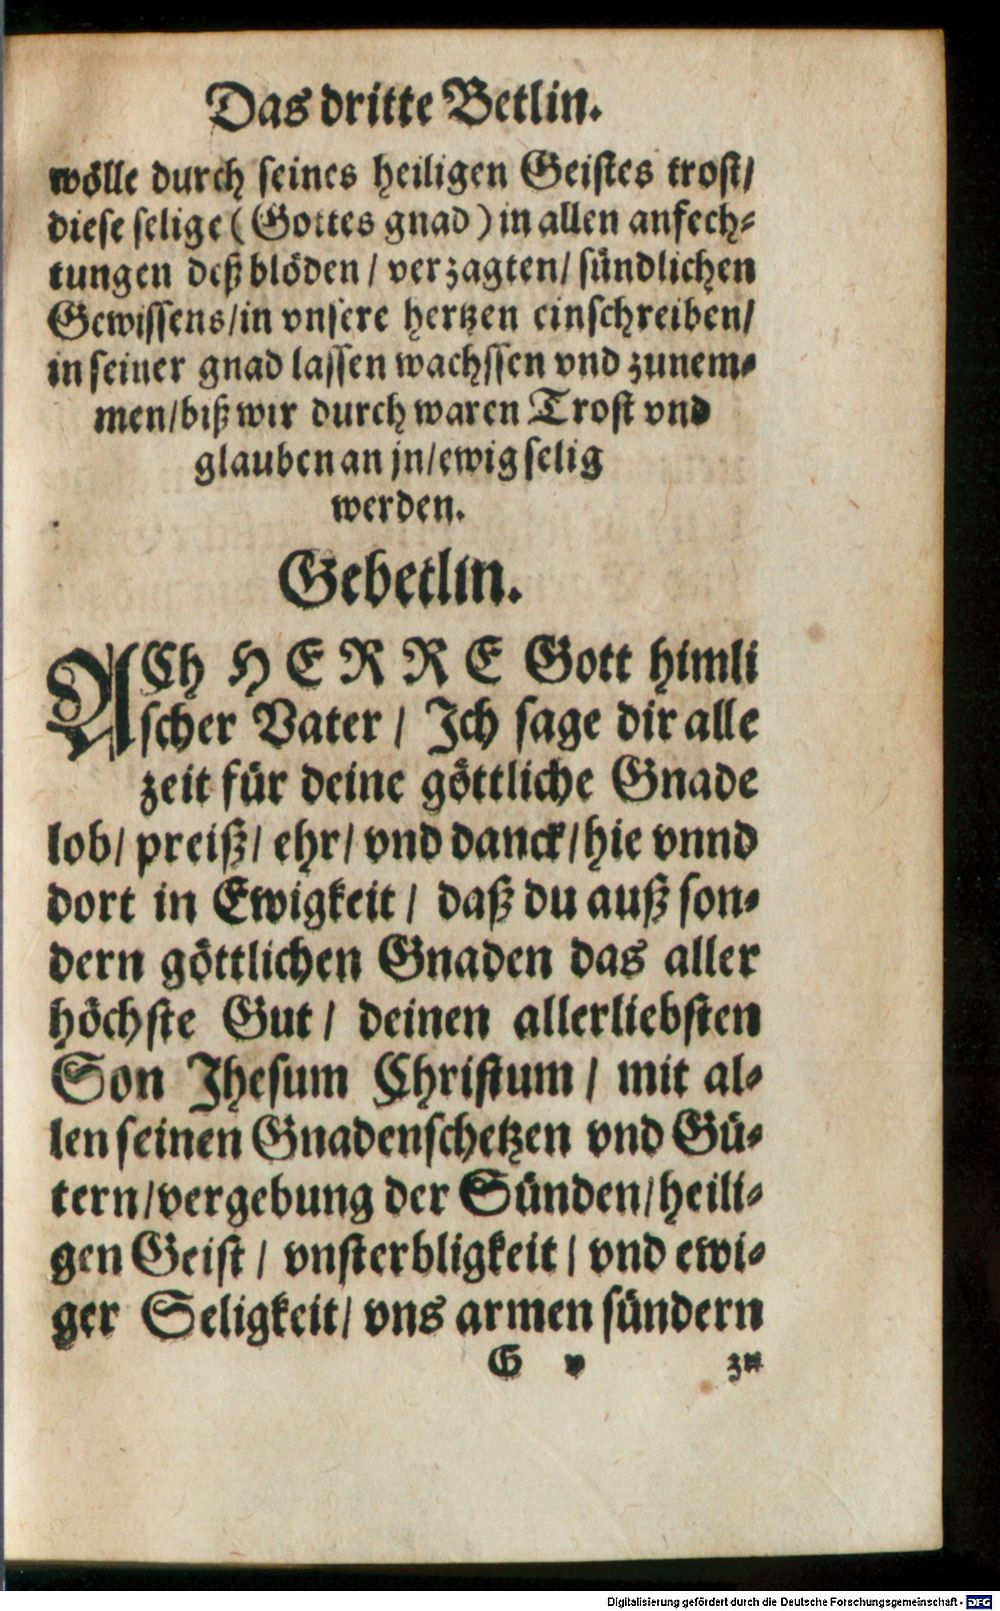 Das dritte Betlin.
wölle durch seines heiligen Geistes trost/
diese selige (Gottes gnad) in allen anfech-
tungen deß blöden/ verzagten/ sündlichen
Gewissens/in vnsere hertzen einschreiben/
in seiner gnad lassen wachssen vnd zunem-
men/biß wir durch waren Trost vnd
glauben an jn/ewig selig
werden.
Gebetlin.
ACh HERRE Gott himli
scher Vater/ Jch sage dir alle
zeit für deine göttliche Gnade
lob/ preiß/ ehr/ vnd danck/hie vnnd
dort in Ewigkeit/ daß du auß son-
dern göttlichen Gnaden das aller
höchste Gut/ deinen allerliebsten
Son Jhesum Christum/ mit al-
len seinen Gnadenschetzen vnd Gü-
tern/vergebung der Sünden/heili-
gen Geist/ vnsterbligkeit/ vnd ewi-
ger Seligkeit/ vns armen sündern
G v zu
Digitalisierung gefördert durch die Deutsche Forschungsgemeinschaft - DFG